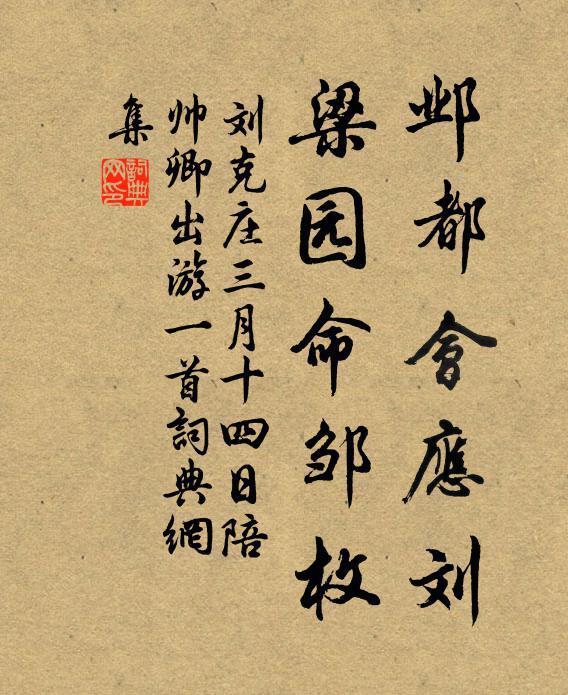 邺都會應刘
梁园命邹枚
刘克庄三月十四日陪
帅卿出游一首詞典網
集
詞典
网印